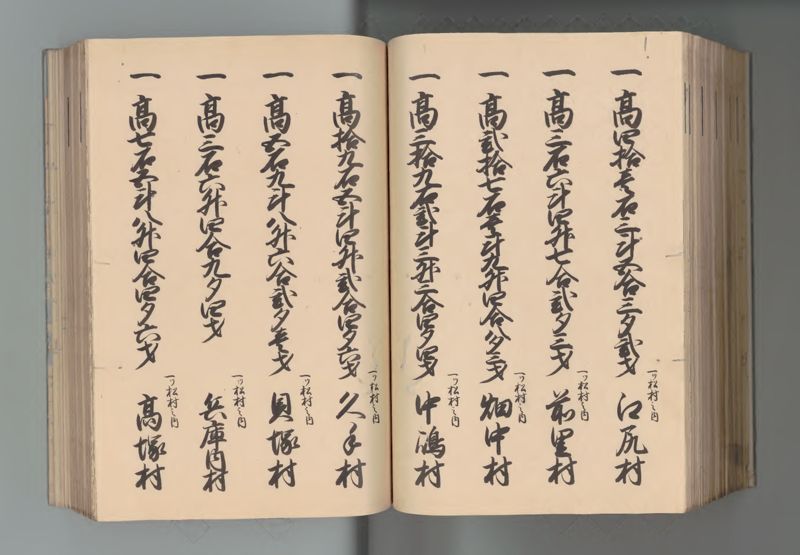 一 高四拾壱石三斗五合三夕弐才 一ツ松村之内 江尻村
一 高三石六斗四升七合弐夕三才 一ツ松村之内 前里村
一 高弐拾七石壱斗九升四合八夕三才 一ツ松村之内 畑中村
一 高三拾九石弐斗三升三合四夕四才 一ツ松村之内 中嶋村
一 高拾九石五斗四升弐合四夕六才 一ツ松村之内 久手村
一 高五石九斗八升六合弐夕壱才 一ツ松村之内 貝塚村
一 高三石六升四合九夕四才 一ツ松村之内 兵庫内村
一 高七石五斗八升四合四夕六才 一ツ松村之内 高塚村